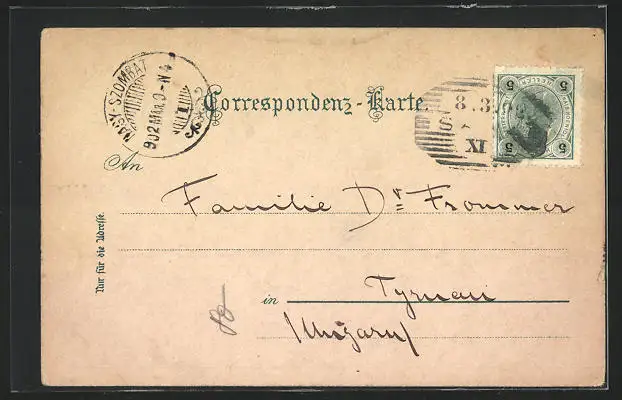 NAGY-SZOMBAT
902 MÁR.
Correspondenz-Karte.
8 3
XI
5 HELLER 5
5 5
An
Familie Dr Frommer
Nur für die Adresse.
in Tyrnau
(Ungarn)